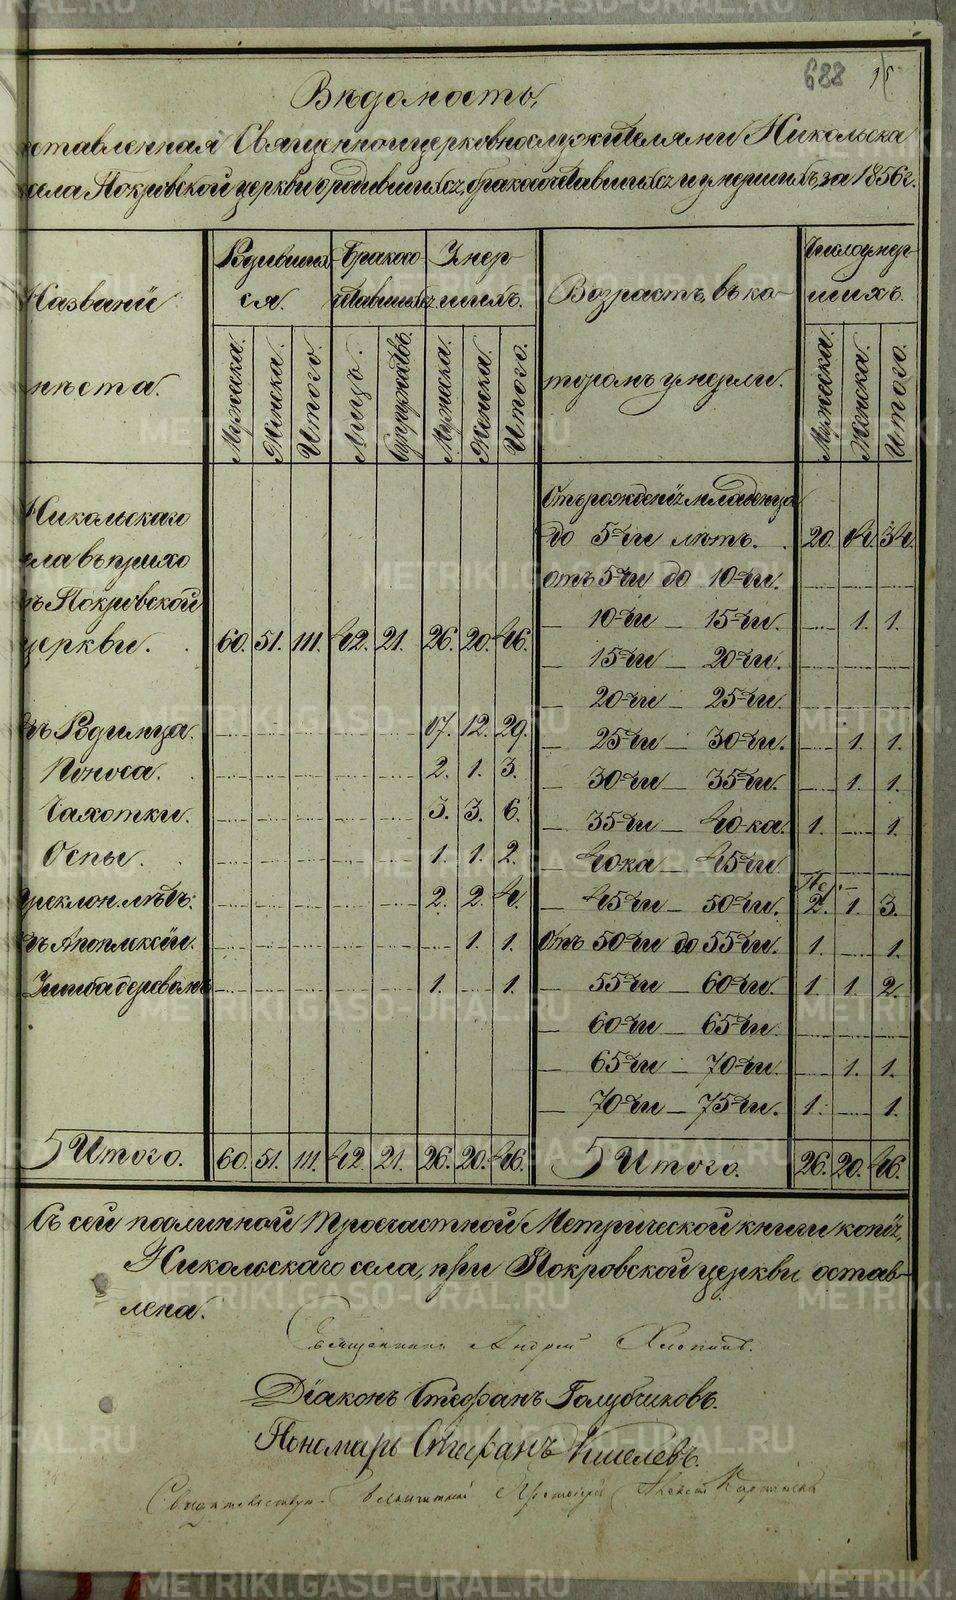 688
Вѣдомость,
ставленная Священноицерковнослужителями Никольска
села Покровской церкви о родившихся, бракосочетавшихся и умершихъ, за 1856 г.
Названіи мѣста.
Родившихся.
Бракосочетавшихся
Умершихъ.
Возрастъ, въ которомъ умерли.
Число умерших.
Мужеска. Женска. Итого. Лицъ. Супружествъ. Мужеска. Женска. Итого. Мужеска. Женска. Итого.
Никольскаго
села въ прихо
Покровской
церкви. 60. 51. 111. 42. 21. 26. 20. 46.
Родимца. 17. 12. 29.
Поноса. 2. 1. 3.
Чахотки. 3. 3. 6.
Оспы. 1. 1. 2.
преклон. лѣтъ. 2. 2. 4.
Апоплексіи. 1. 1.
деревомъ 1. 1.
Итого. 60. 51. 111. 42. 21. 26. 20. 46.
Отъ рожденія младенца
до 5-ти лѣтъ. 20. 14. 34.
отъ 5-ти до 10-ти.
— 10-ти — 15-ти. 1. 1.
— 15-ти — 20-ти.
— 20-ти — 25-ти.
— 25-ти — 30-ти. 1. 1.
— 30-ти — 35-ти. 1. 1.
— 35-ти — 40-ка. 1. 1.
— 40-ка — 45-ти.
— 45-ти — 50-ти. 2. 1. 3.
Отъ 50-ти до 55-ти. 1. 1.
— 55-ти — 60-ти. 1. 1. 2.
— 60-ти — 65-ти.
— 65-ти — 70-ти. 1. 1.
— 70-ти — 75-ти. 1. 1.
Итого. 26. 20. 46.
Съ сей подлинной Троечастной Метрической книги копія,
Никольскаго села, при Покровской церкви остав-
лена.
Священникъ Андрей
Діаконъ Стефанъ Голубчиковъ.
Пономарь Стефанъ Киселевъ.
Свидетельствую. Протоіерей
METRIKI.GASO-URAL.RU